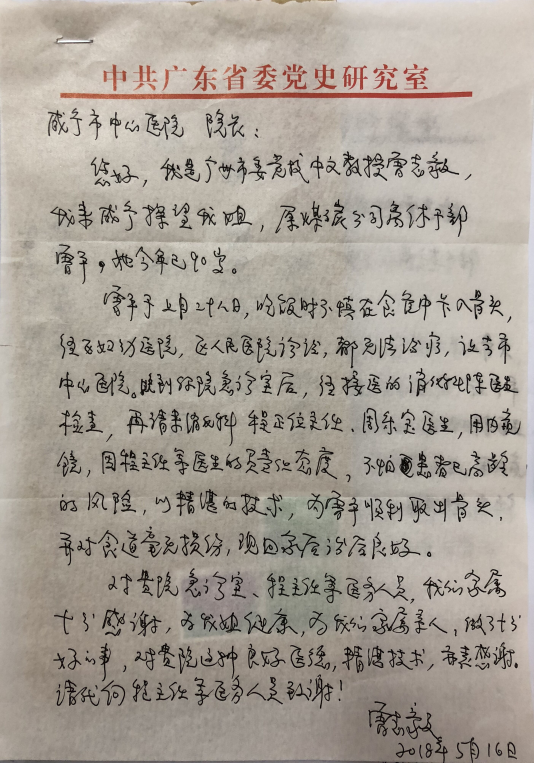 中共广东省委党史研究室
咸宁市中心医院 院长：
您好，我是广州市委党校中文教授曹志毅，
我来咸宁探望我姐，原煤炭公司离休干部
曹平，她今年已90岁。
曹平于上月二十八日，吃饭时不慎在食道中卡入骨头，
经区妇幼医院，区人民医院诊治，都无法治疗，议去市
中心医院。达到你院急诊室后，经接医的消化科陈医生
检查，再请来消化科 程正位主任、周乐宝医生，用内窥
镜，因程主任等医生的负责任态度，不怕患者已高龄
的风险，以精湛的技术，为曹平顺利取出骨头，
并对食道毫无损伤，现回家后诊后良好。
对贵院急诊室、程主任等医务人员，我们家属
十分感谢，为我姐健康，为我们家属亲人，做了十分
好的事，对贵院这种良好医德，精湛技术，亦表感谢。
请代向程主任等医务人员致谢！
曹志毅
2018年5月16日